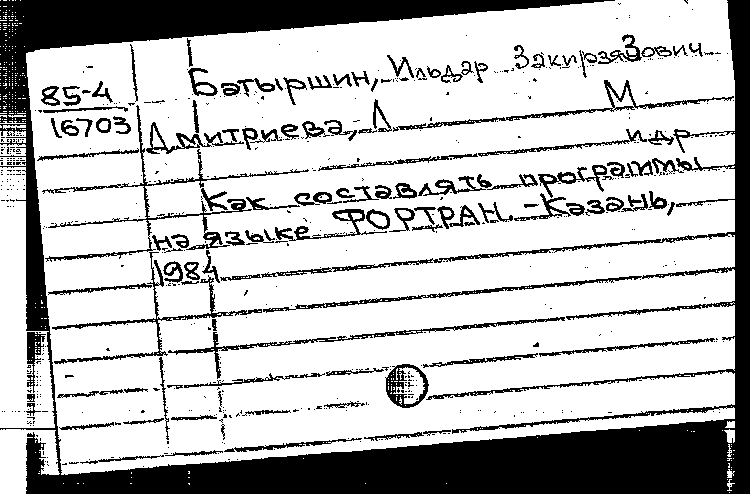 85-4 Батыршин, Ильдар Закирзянович
16703 Дмитриева, Л М
и др
Как составлять программы
на языке ФОРТРАН. - Казань,
1984